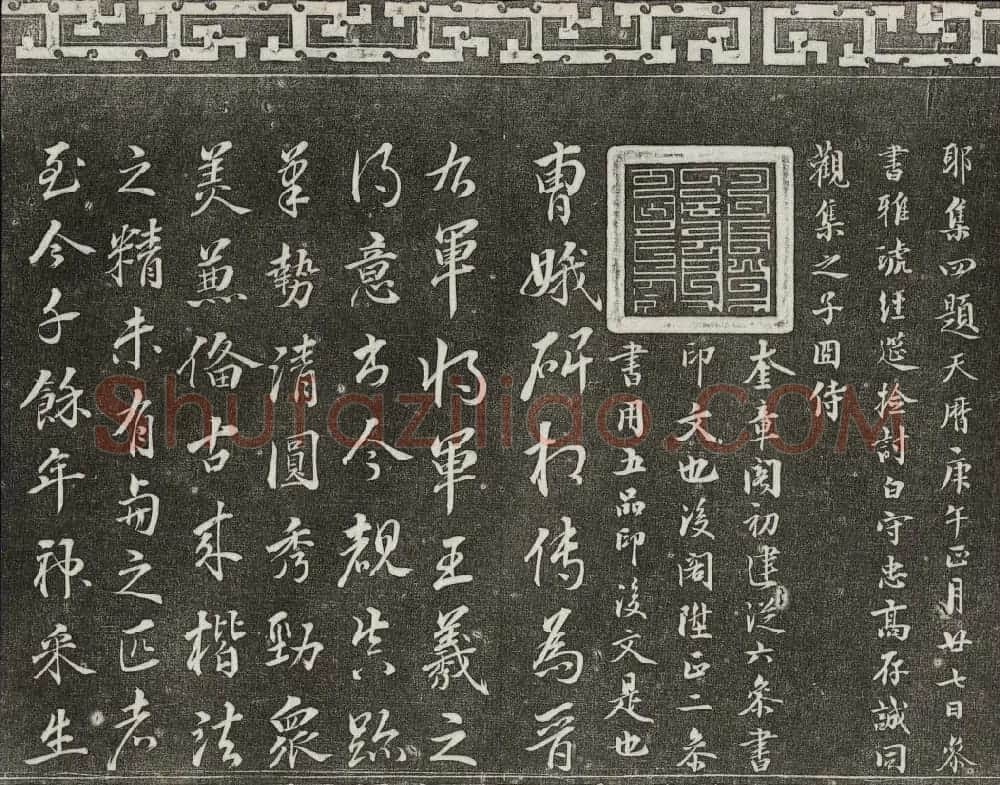 耶集四題天曆庚午正月廿七日叅
書雅琥經筵撿討白守忠高存誠同
觀集之子囸侍
奎章閣初建從六叅書
印文也後閣陞正二叅
書用五品印後文是也
曹娥碑相傳為晉
右軍将軍王羲之
得意書今覩真跡
筆勢清圓秀勁眾
美兼備古来楷法
之精未有與之匹者
至今千餘年神采生
Shufaziliao.COM